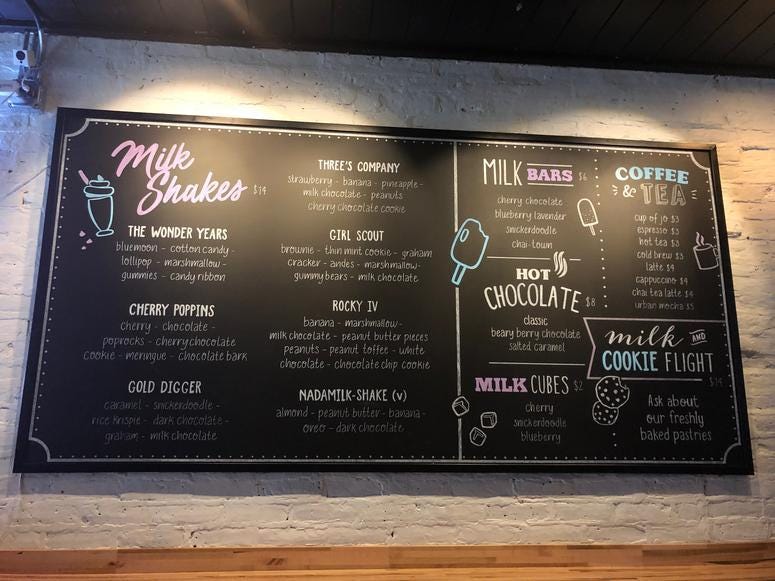 Milk
Shakes $14
THE WONDER YEARS
bluemoon - cotton candy -
lollipop - marshmallow -
gummies - candy ribbon
CHERRY POPPINS
cherry - chocolate -
poprocks - cherry chocolate
cookie - meringue - chocolate bark
GOLD DIGGER
caramel - snickerdoodle -
rice krispie - dark chocolate -
graham - milk chocolate
THREE'S COMPANY
strawberry - banana - pineapple -
milk chocolate - peanuts
cherry chocolate cookie
GIRL SCOUT
brownie - thin mint cookie - graham
cracker - andes - marshmallow -
gummy bears - milk chocolate
ROCKY IV
banana - marshmallow -
milk chocolate - peanut butter pieces
peanuts - peanut toffee - white
chocolate - chocolate chip cookie
NADAMILK-SHAKE (v)
almond - peanut butter - banana -
oreo - dark chocolate
MILK BARS $6
cherry chocolate
blueberry lavender
snickerdoodle
chai-town
HOT
CHOCOLATE $8
classic
beary berry chocolate
salted caramel
MILK CUBES $2
cherry
snickerdoodle
blueberry
COFFEE
& TEA
cup of jo $3
espresso $3
hot tea $3
cold brew $3
latte $4
cappuccino $4
chai tea latte $4
urban mocha $5
milk AND
COOKIE FLIGHT
$14
Ask about
our freshly
baked pastries